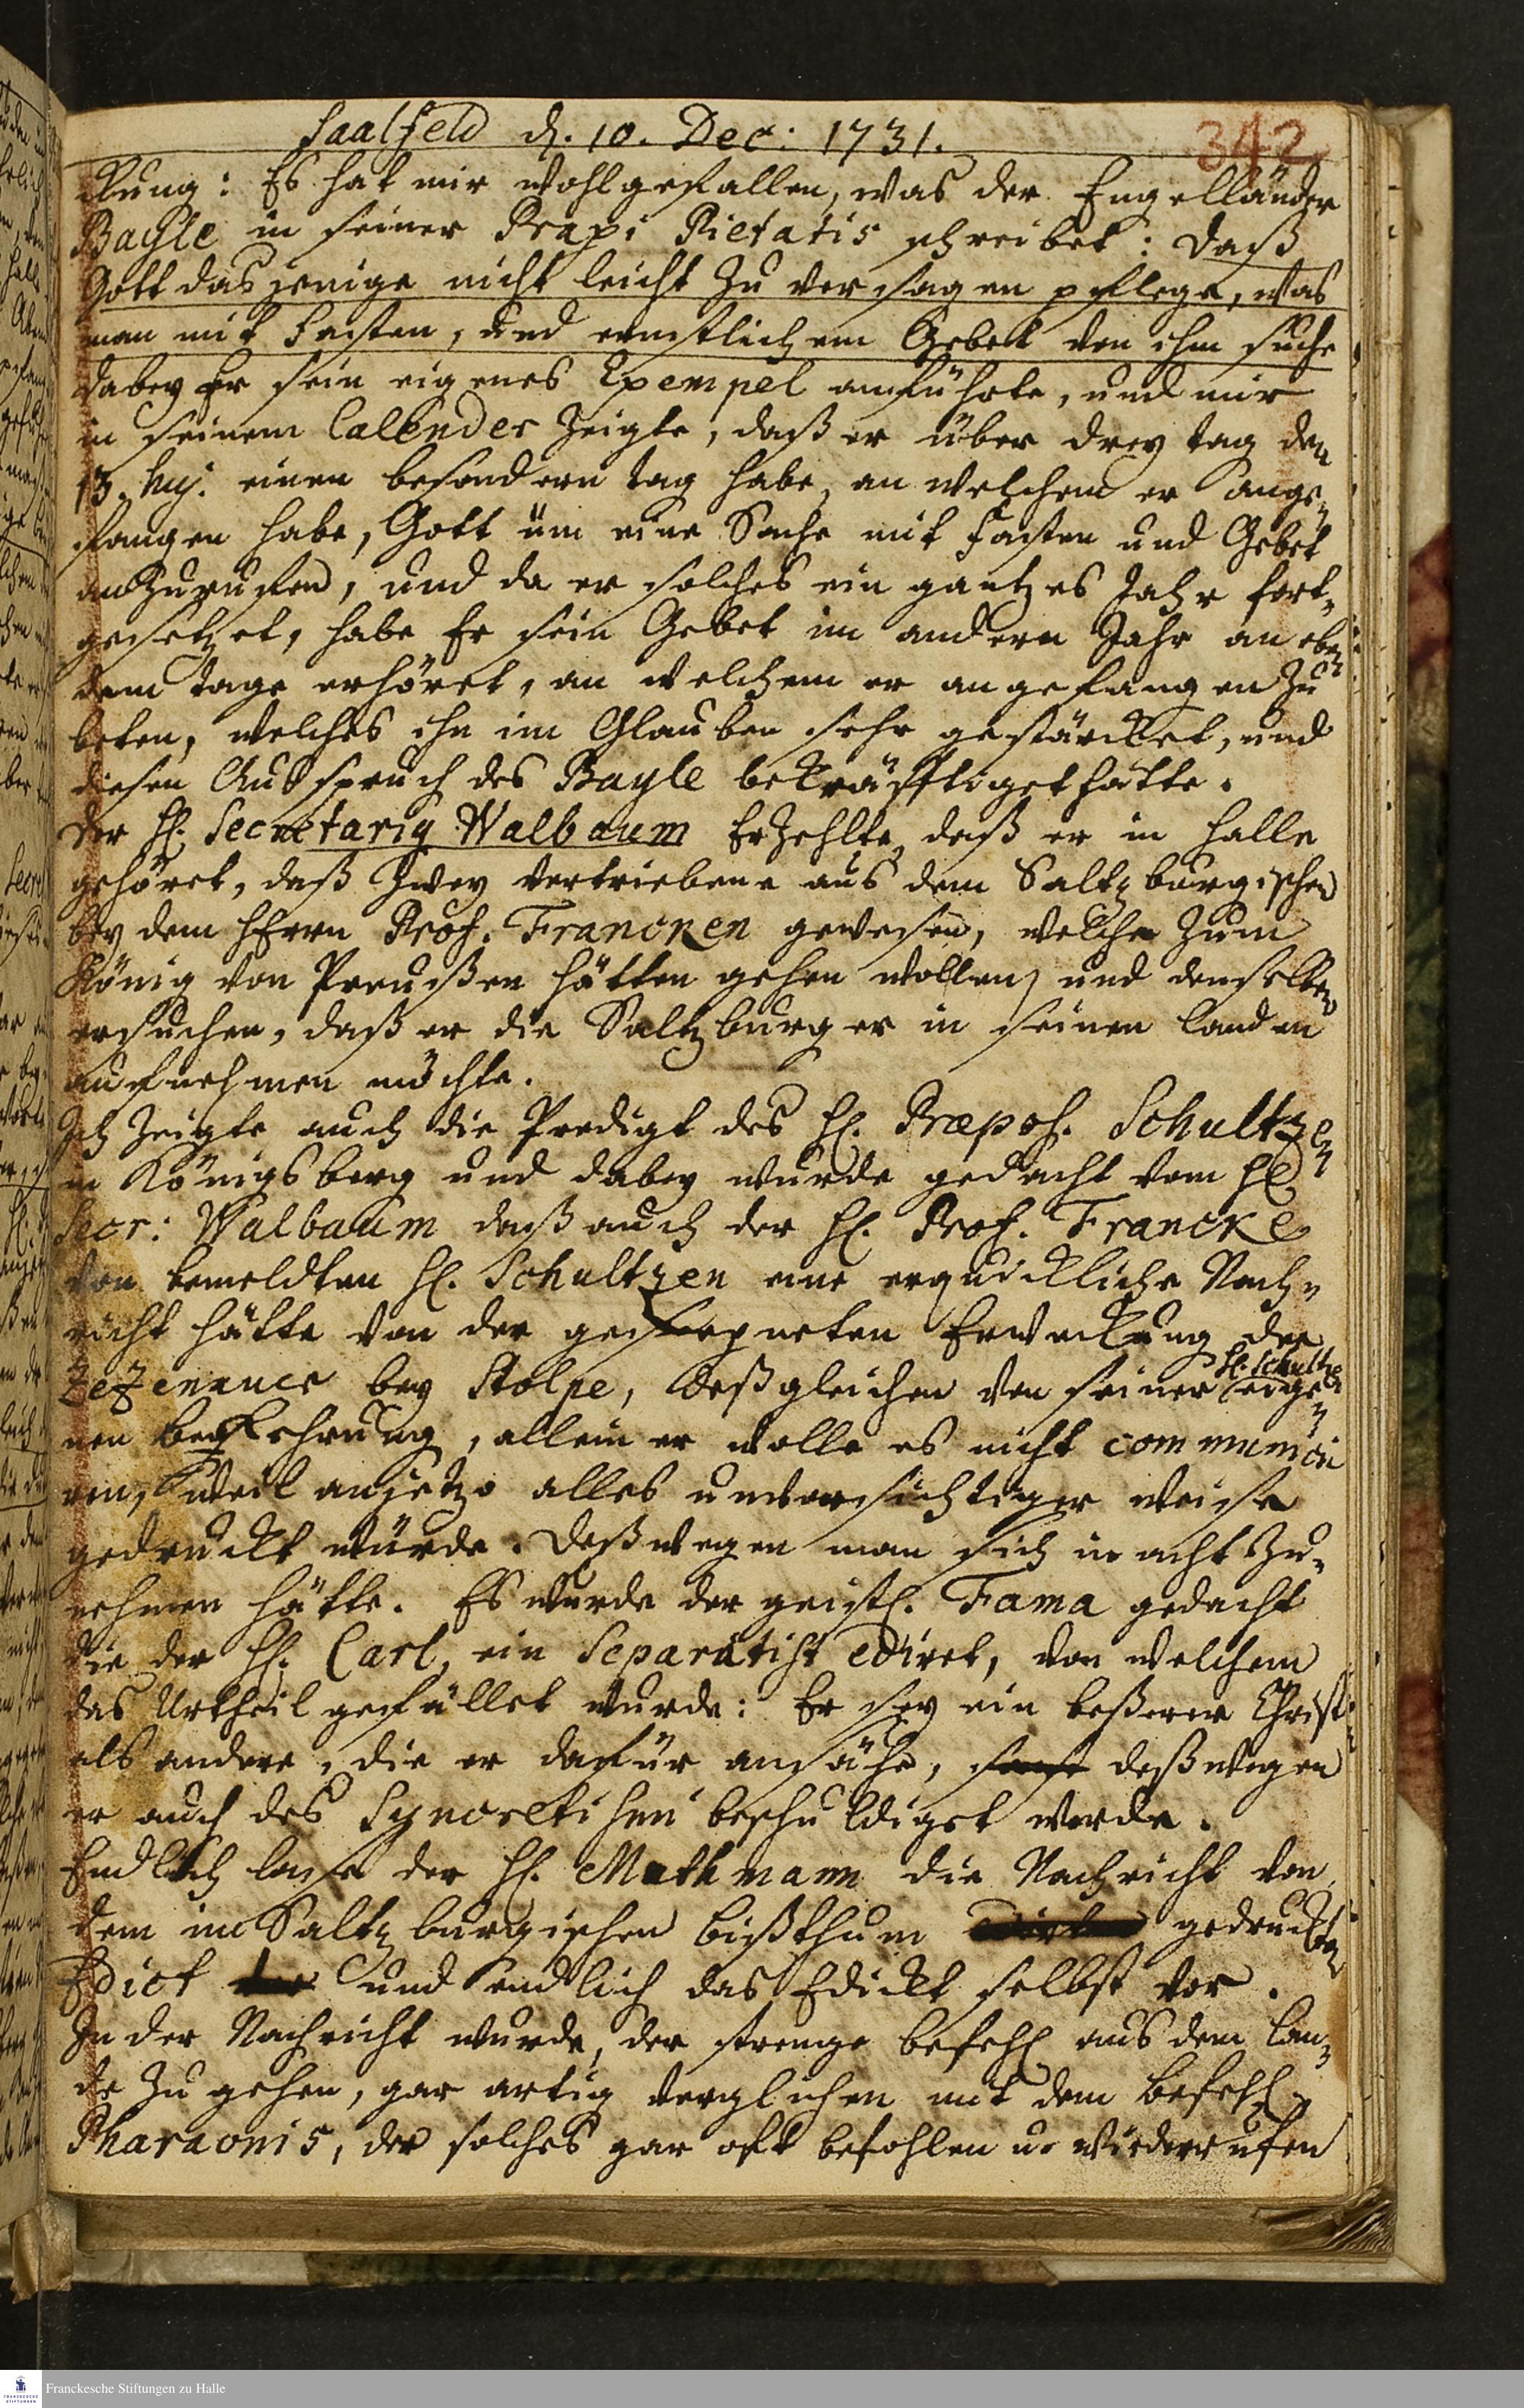 Saalfeld d. 10. Dec: 1731.
342
kung: Es hat mir wohlgefallen, was der Engelländer
Bayle in seiner Praxi Pietatis schreibet: daß
Gott dasjenige nicht leicht zu versagen pflege, was
man mit fasten, und ernstlichem Gebet von ihm suche
dabey Er sein eigenes Exempel anführte, und mir
in seinem Calender zeigte, daß er über drey tag den
13. huj. einen besondern tag habe, an welchem er ange¬
fangen habe, Gott üm eine Sache mit fasten und Gebet
anzurufen, und da er solches ein gantzes Jahr fort¬
gesetzet, habe Er sein Gebet im andern Jahr an eben
dem tage erhöret, an welchem er angefangen zu
beten, welches ihn im Glauben sehr gestärcket, und
diesen Ausspruch des Bayle bekräfftiget hätte.
Der H. Secretariq Walbaum Erzehlte, daß er in Halle
gehöret, daß zwey vertriebene aus dem Saltzburgischen
bey dem HErrn Prof. Francken gewesen, welche zum
König von Preußen hätten gehen wollen, und denselben
ersuchen, daß er die Saltzburger in seinen landen
aufnehmen möchte.
Ich zeigte auch die Predigt des H. Præpos. Schultzen
in Königsberg und dabey wurde gedacht vom H.
Secr: Walbaum daß auch der H. Prof. Francke
von bemeldten H. Schultzen eine erquickliche Nach¬
richt hätte von der gesegneten Erweckung der
Zezenauer bey Stolpe, deßgleichen von seiner H. Schultzen eige¬
nen bekehrung, allein er wolle es nicht communici
ren, weil anjetzo alles unvorsichtiger weise
gedruckt würde. Deßwegen man sich in acht zu¬
nehmen hätte. Es wurde der geistl. Fama gedacht
die der H. Carl, ein Separatist ediret, von welchem
das Urtheil gefället wurde: Er sey ein beßerer Christ
als andere, die er dafür ansähe, deßwegen
er auch des Syncretismi beschuldiget werde.
Endlich lase der H. Muthmann die Nachricht von
dem im Saltzburgischen bißthum gedruckten
Edict und endlich das Edickt selbst vor.
In der Nachricht wurde, der strenge befehl aus dem lan¬
de zu gehen, gar artig verglichen mit dem befehl
Pharaonis, der solches gar oft befohlen u. wiederrufen
Franckesche Stiftungen zu Halle